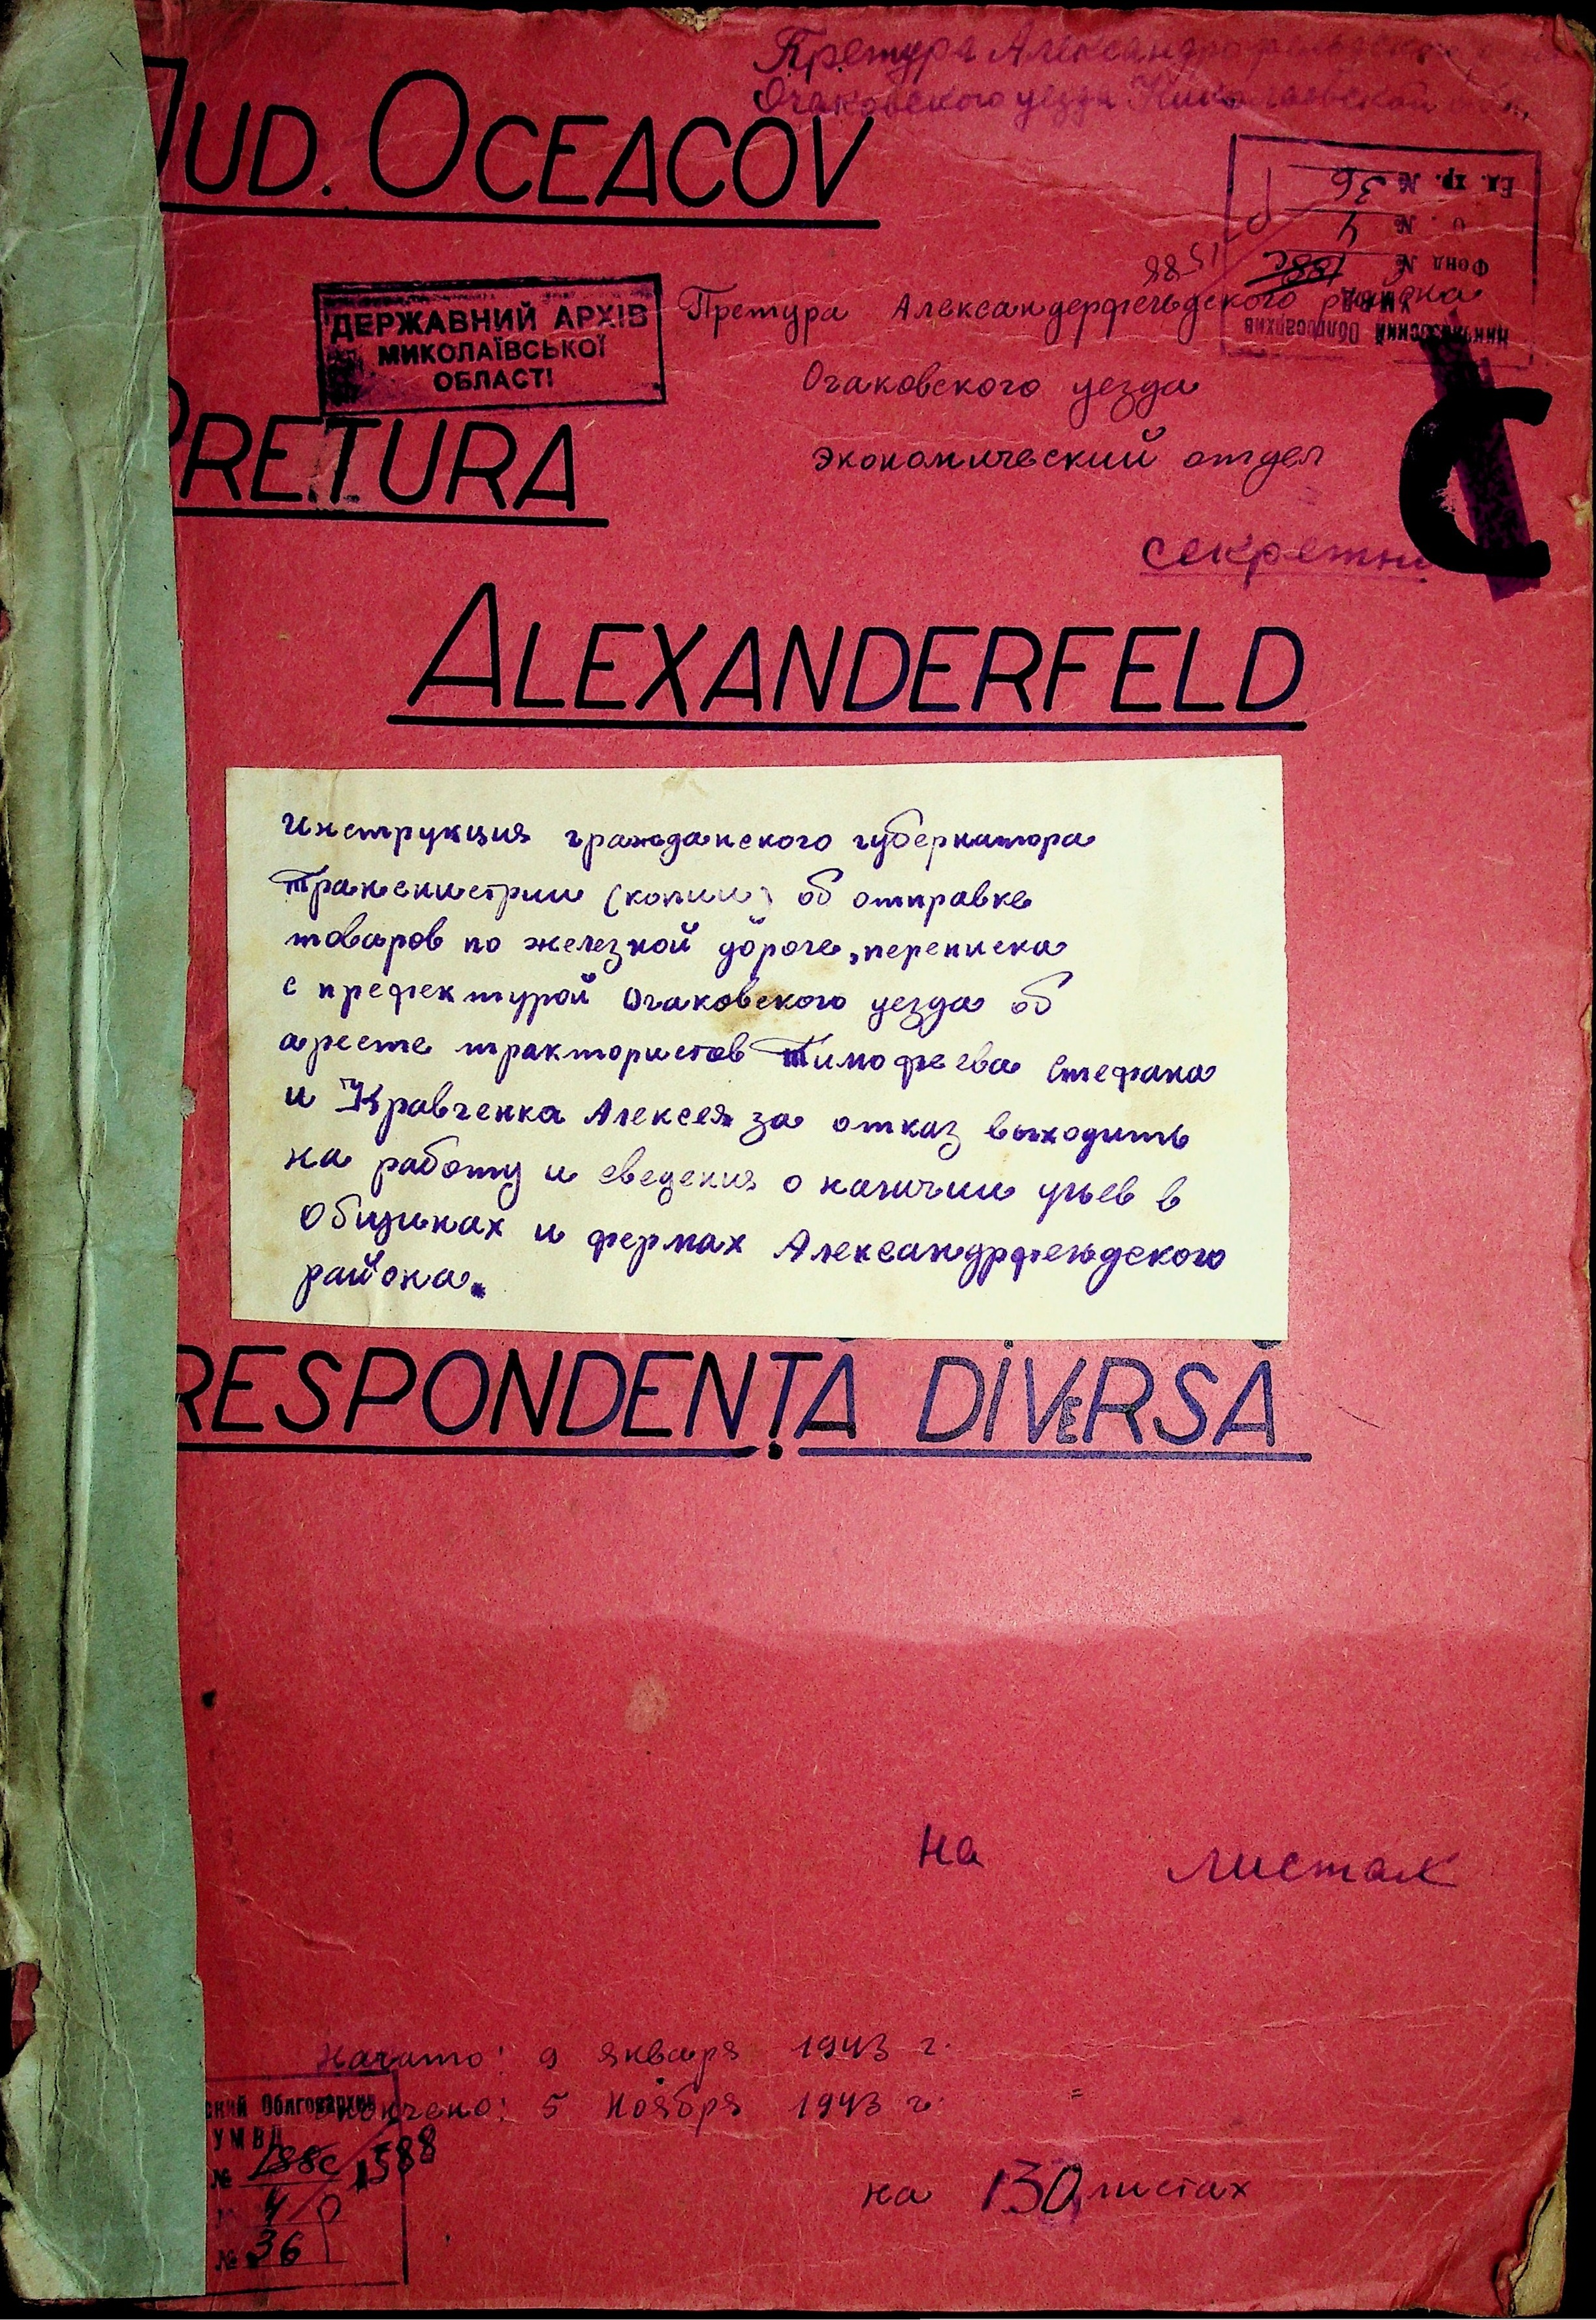 Претура Александрфельдского
Очаковского уезда Николаевской обл.
JUD. OCEACOV
Ед. хр. № 36
О. № 4
Фонд № 188с
1588
Николаевский Облгосархив
УМВД
ДЕРЖАВНИЙ АРХІВ
МИКОЛАЇВСЬКОЇ
ОБЛАСТІ
Претура Александерфельдского района
Очаковского уезда
экономический отдел
PRETURA
С
секретно
ALEXANDERFELD
Инструкция гражданского губернатора
Транснистрии (копии) об отправке
товаров по железной дороге, переписка
с префектурой Очаковского уезда об
аресте трактористов Тимофеева Стефана
и Кравченка Алексея за отказ выходить
на работу и сведения о наличии ульев в
общинах и фермах Александрфельдского
района.
RESPONDENȚĂ DIVERSĂ
на листах
Начато: 9 января 1943 г.
Окончено: 5 ноября 1943 г.
ский Облгосархив
УМВД
№ 188с 1588
4
№ 36
на 130 листах